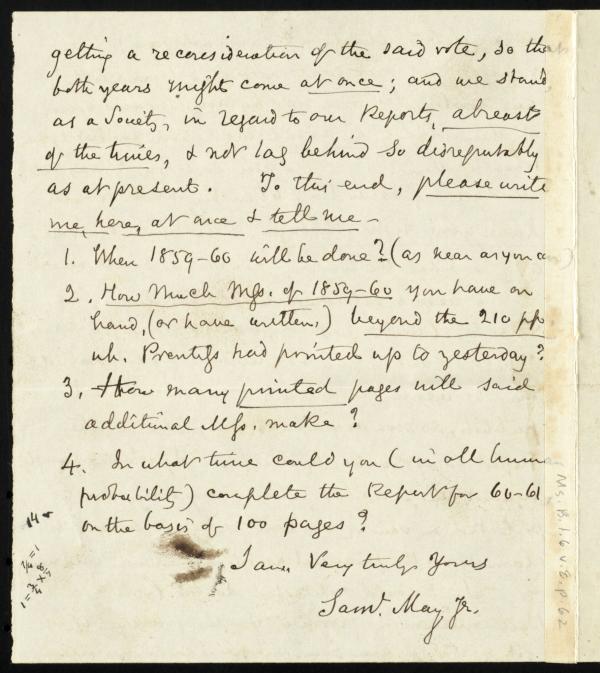 getting a reconsideration of the said vote, so that
both years might come at once; and we stand
as a Society, in regard to our Reports, abreast
of the times, & not lag behind so disreputably
as at present. To this end, please write
me, here, at once & tell me –
1. When 1859-60 will be done? (as near as you can)
2. How Much Mss. of 1859-60 you have on
hand, (or have written,) beyond the 210 pp.
wh. Prentiss had printed up to yesterday?
3. How many printed pages will said
additional Mss. make?
4. In what time could you (in all human
probability) complete the Report for 60-61
on the basis of 100 pages?
I am, Very truly Yours
Saml. May Jr.
Ms. B.1.6 v.8. p.62